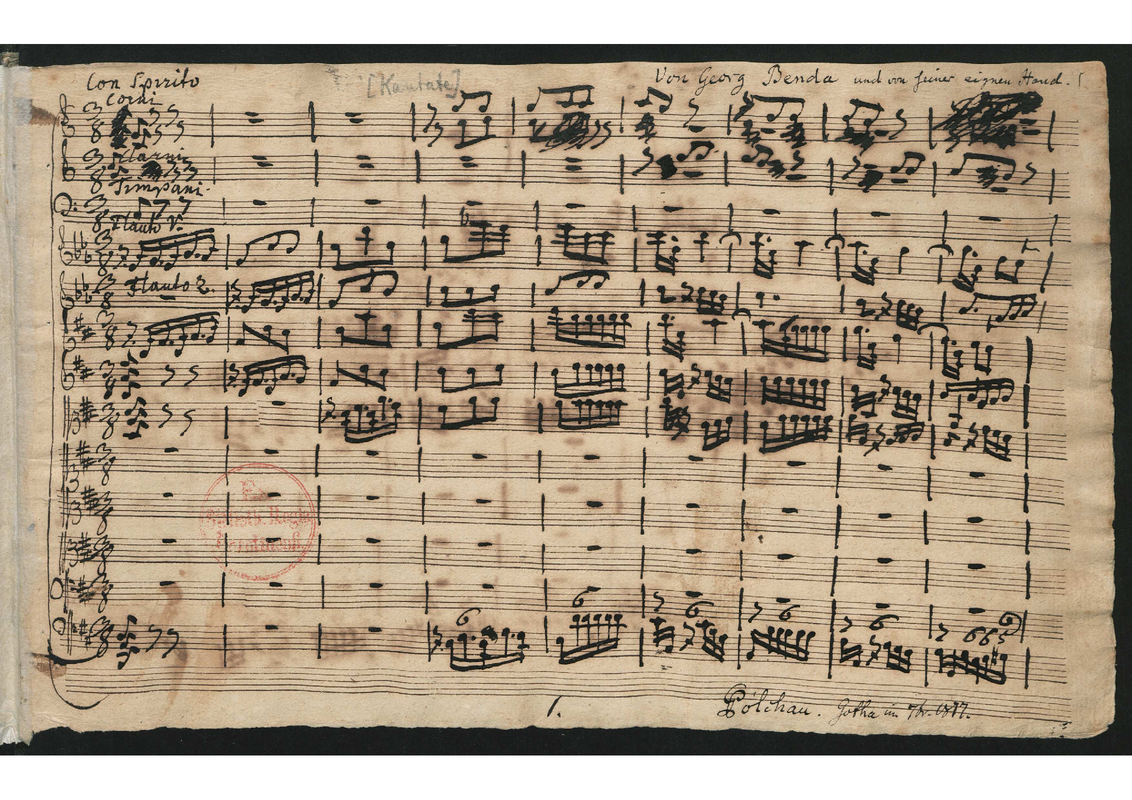 Con Spirito
[Kantate]
Von Georg Benda und von seiner eignen Hand.
Corni
Clarni
Timpani.
Flauto
Flauto 2.
6
6
7 6
7 6
7 6
7 6 6 5
1.
Pölchau. Gotha im